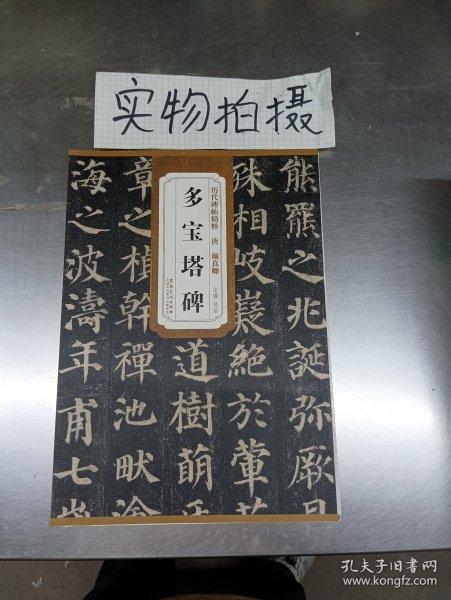 实物拍摄
历代碑帖精粹 唐 颜真卿
多宝塔碑
主编 杜浩
熊羆之兆誕弥厥月
殊相岐嶷絶於葷茹
道樹萌牙
章之楨幹禪池畎澮
海之波濤年甫七歲
孔夫子旧书网
www.kongfz.com